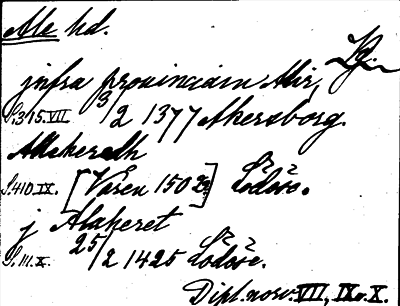 Ale hd.
infra prouinciam Alir,
S.315.VII. 3/2 1377 Akersborg.
Alekeredh
S.410.IX. [Våren 1502] Lödöse.
j Alakeret
S.111.X. 25/2 1425 Lödöse.
Dipl. norv. VII, IX o. X.